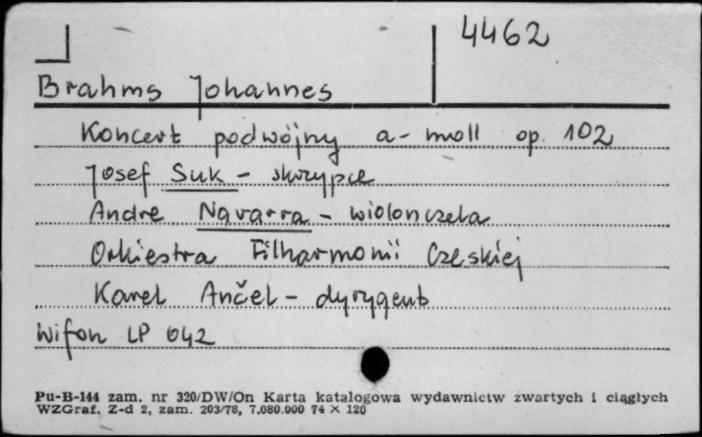 4462
Brahms Johannes
Koncert podwójny a-moll op. 102
Josef Suk - skrzypce
Andre Navarra - wiolonczela
Orkiestra Filharmonii Czeskiej
Karel Ančel - dyrygent
Wifon LP 042
Pu-B-144 zam. nr 320/DW/On Karta katalogowa wydawnictw zwartych i ciągłych
WZGraf. Z-d 2, zam. 203/78, 7.080.000 74 × 120